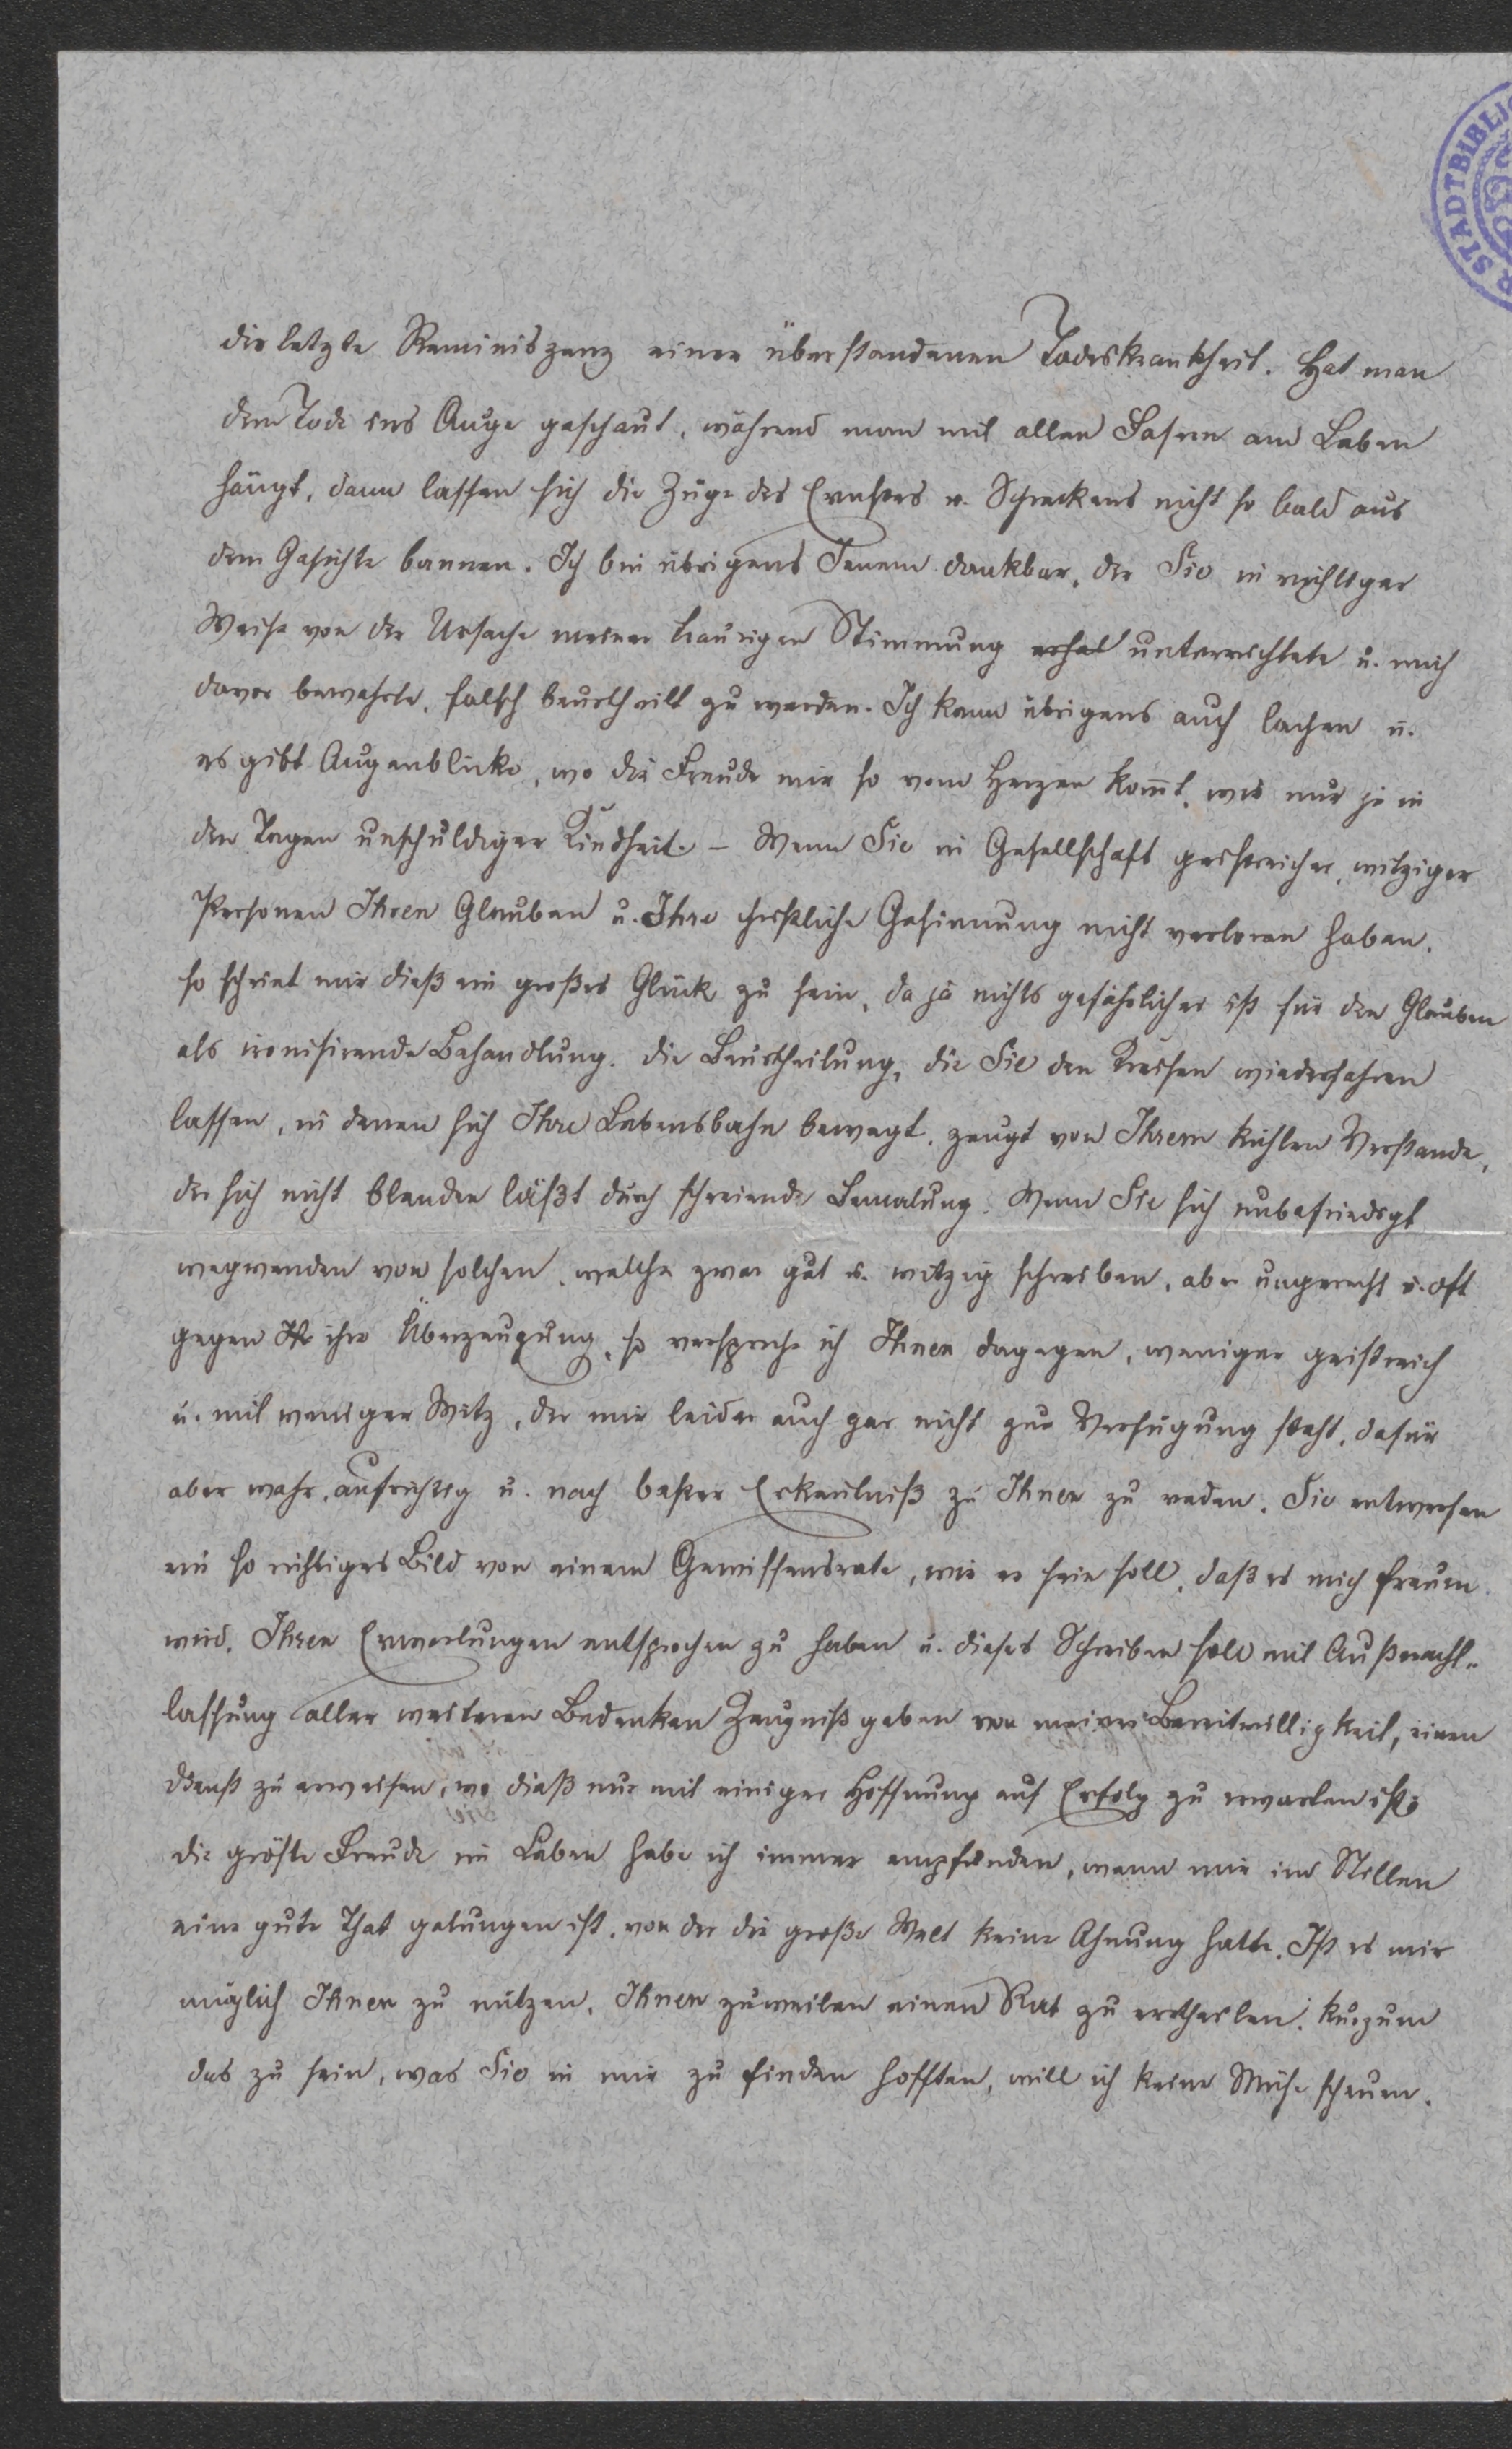 STADTBIBLIO
die letzte Reminiszenz einer überstandenen Todeskrankheit. Hat man
dem Tode ins Auge geschaut, während man mit allen Fasern am Leben
hängt, dann lassen sich die Züge des Ernstes u. Schreckens nicht so bald aus
dem Gesichte bannen. Ich bin übrigens Jenem dankbar, der Sie in richtiger
Weise von der Ursache meiner traurigen Stimmung unterrichtete u. mich
davor bewahrte, falsch beurtheilt zu werden. Ich kann übrigens auch lachen u.
es gibt Augenblicke, wo die Freude mir so vom Herzen kom̄t, wie nur je in
den Tagen unschuldiger Kindheit. – Wenn Sie in Gesellschaft geistreicher, witziger
Personen Ihren Glauben u. Ihre christliche Gesinnung nicht verloren haben,
so scheint mir dieß ein großes Glück zu sein, da ja nichts gefährlicher ist für den Glauben
als ironisirende Behandlung. Die Beurtheilung, die Sie den Kreisen wiederfahren
lassen, in denen sich Ihre Lebensbahn bewegt, zeugt von Ihrem kühlen Verstande,
der sich nicht blenden läßt durch schreiende Bemalung. Wenn Sie sich unbefriedigt
wegwenden von solchen, welche zwar gut u. witzig schreiben, aber ungerecht u. oft
gegen ihre Überzeugung, so verspreche ich Ihnen dagegen, weniger geistreich
u. mit weniger Witz, der mir leider auch gar nicht zur Verfügung steht, dafür
aber wahr, aufrichtig u. nach bester Erkentniß zu Ihnen zu reden. Sie entwerfen
ein so richtiges Bild von einem Gewissensrate, wie er sein soll, daß es mich freuen
wird, Ihren Erwartungen entsprochen zu haben u. dieses Schreiben soll mit Außeracht-
lassung aller weiteren Bedenken Zeugniß geben von meiner Bereitwilligkeit, einen
Dienst zu erweisen, wo dieß nur mit einiger Hoffnung auf Erfolg zu erwarten ist;
die größte Freude im Leben habe ich immer empfunden, wenn mir im Stillen
eine gute That gelungen ist, von der die große Welt keine Ahnung hatte. Ist es mir
möglich Ihnen zu nützen, Ihnen zuweilen einen Rat zu ertheilen, kurzum
das zu sein, was Sie in mir zu finden hofften, will ich keine Mühe scheuen.